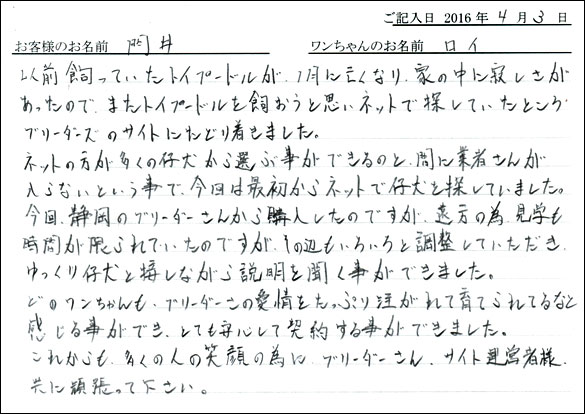 ご記入日 2016年4月3日
お客様のお名前 門井 ワンちゃんのお名前 ロイ
以前飼っていたトイプードルが、1月に亡くなり、家の中に寂しさが
あったので、またトイプードルを飼おうと思いネットで探していたところ
ブリーダーズのサイトにたどり着きました。
ネットの方が多くの仔犬から選ぶ事ができるのと、間に業者さんが
入らないという事で、今回は最初からネットで仔犬を探していました。
今回、静岡のブリーダーさんから購入したのですが、遠方の為、見学も
時間が限られていたのですが、その辺もいろいろと調整していただき、
ゆっくり仔犬と接しながら説明を聞く事ができました。
どのワンちゃんも、ブリーダーさの愛情をたっぷり注がれて育てられてるなと
感じる事ができ、とても安心して契約する事ができました。
これからも、多くの人の笑顔の為に、ブリーダーさん、サイト運営者様、
共に頑張って下さい。